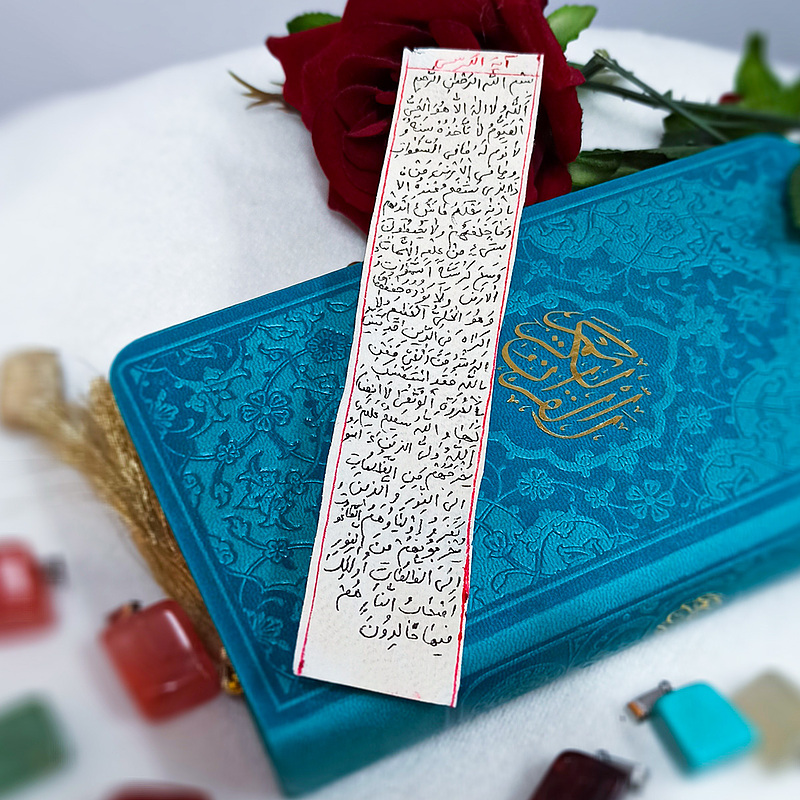 آیة الکرسی
بسم الله الرحمن الرحیم
اَللهُ لا اِلهَ اِلّا هُوَ الحَیُّ
القَیُّومُ لا تَأخُذُهُ سِنَةٌ وَ
لا نَومٌ لَهُ ما فِی السَّمٰوٰاتِ
وَ ما فِی الاَرضِ مَن
ذَا الَّذی یَشفَعُ عِندَهُ اِلّا
بِاِذنِهِ یَعلَمُ ما بَینَ اَیدیهِم
وَ ما خَلفَهُم وَ لا یُحیطُونَ
بِشَیءٍ مِن عِلمِهِ اِلّا بِما شاءَ
وَسِعَ کُرسِیُّهُ السَّمٰوٰاتِ وَ
الاَرضَ وَ لا یَؤُدُهُ حِفظُهُما
وَ هُوَ العَلِیُّ العَظیمُ لا
اِکراهَ فِی الدّینِ قَد تَبَیَّنَ
الرُّشدُ مِنَ الغَیِّ فَمَن
بِاللهِ فَقَدِ استَمسَکَ
بِالعُروَةِ الوُثقی لَا انفِصامَ
لَها وَ اللهُ سَمیعٌ عَلیمٌ
اَللهُ وَلِیُّ الَّذینَ آمَنُوا
یُخرِجُهُم مِنَ الظُّلُماتِ
اِلَی النُّورِ وَ الَّذینَ
کَفَرُوا اَولِیاؤُهُمُ الطّاغُوتُ
یُخرِجُونَهُم مِنَ النُّورِ
اِلَی الظُّلُماتِ اُولٰئِکَ
اَصحابُ النّارِ هُم
فیها خالِدُونَ
القرآن الکریم